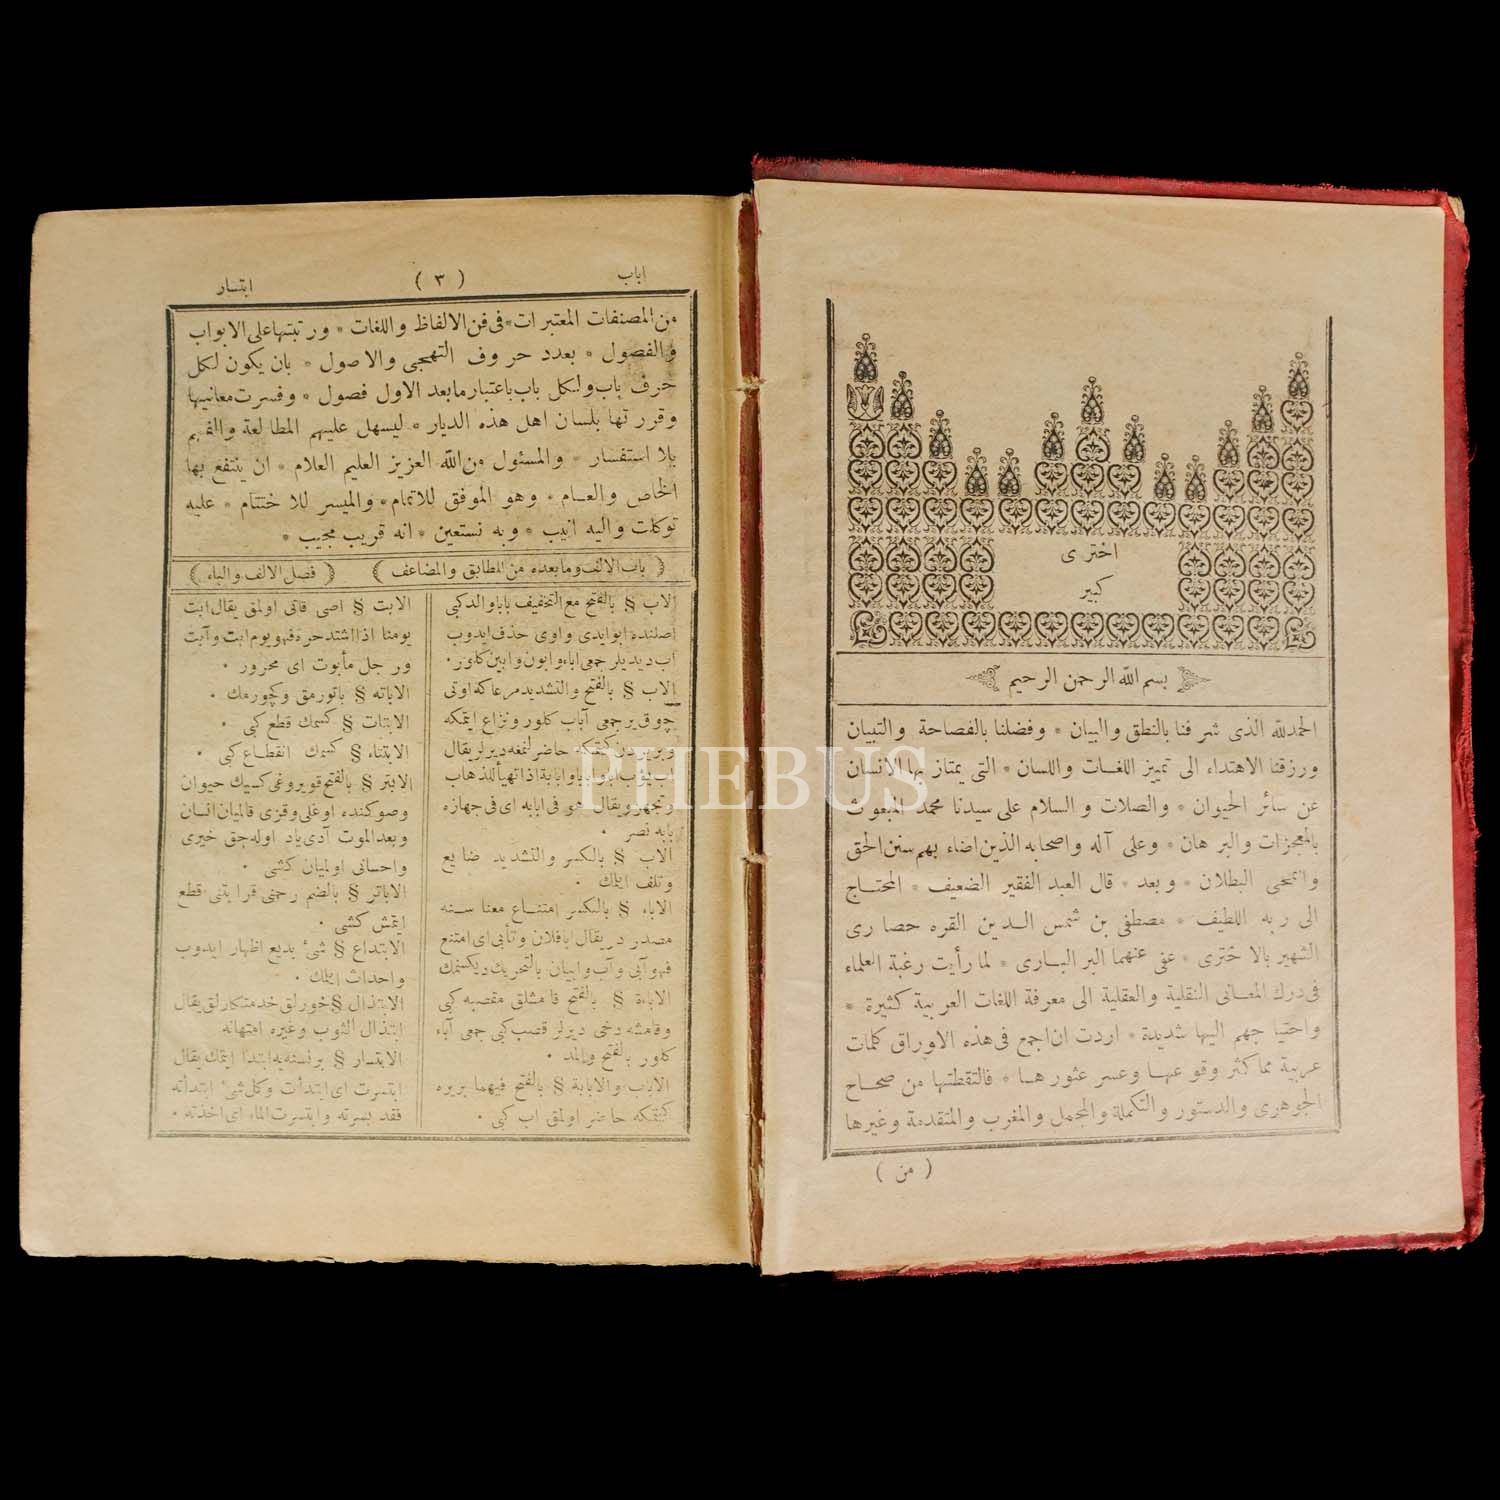 اخترى
كبير
بسم الله الرحمن الرحيم
الحمدلله الذى شرفنا بالنطق والبيان * وفضلنا بالفصاحة والتبيان
ورزقنا الاهتداء الى تمييز اللغات واللسان * التى يمتاز بها الانسان
عن سائر الحيوان * والصلات والسلام على سيدنا محمد المبعوث
بالمعجزات والبرهان * وعلى آله واصحابه الذين اضاء بهم سنن الحق
وانمحى البطلان * وبعد * قال العبد الفقير الضعيف * المحتاج
الى ربه اللطيف * مصطفى بن شمس الدين القره حصارى
الشهير بالاخترى * عفى عنهما البر البارى * لما رأيت رغبة العلماء
فى درك المعانى النقلية والعقلية الى معرفة اللغات العربية كثيرة *
واحتياجهم اليها شديدة * اردت ان اجمع فى هذه الاوراق كلمات
عربية مما كثر وقوعها وعسر عثورها * فالتقطتها من صحاح
الجوهرى والدستور والتكملة والمجمل والمغرب والمتقدمة وغيرها
( من )
اباب ( ٣ ) ابتسار
من المصنفات المعتبرات * فى فن الالفاظ واللغات * ورتبتها على الابواب
والفصول * بعدد حروف التهجى والاصول * بان يكون لكل
حرف باب ولكل باب باعتبار ما بعد الاول فصول * وفسرت معانيها
وقررتها بلسان اهل هذه الديار * ليسهل عليهم المطالعة والفهم
بلا استفسار * والمسئول من الله العزيز العليم العلام * ان ينتفع بها
الخاص والعام * وهو الموفق للاتمام * والميسر للاختتام * عليه
توكلت واليه انيب * وبه نستعين * انه قريب مجيب *
( باب الالف وما بعده من المطابق والمضاعف ) ( فصل الالف والباء )
الاب § بالفتح مع التخفيف بابا والد كبى
اصلنده ابو ايدى واوى حذف ايدوب
اب ديديلر جمعى آباء وابون وابين كلور.
الاب § بالفتح والتشديد مرعا كه اوتى
چوق ير جمعى آباب كلور ونزاع ايتمكه
وبر يردن كتمكه حاضرلنمغه ديرلر يقال
اب يؤب ابا وابابا وابابة اذا تهيأ للذهاب
وتجهز ويقال هو فى ابابه اى فى جهازه
بابه نصر .
الاب § بالكسر والتشديد ضايع
وتلف ايتمك .
الاباء § بالكسر امتناع معناسنه
مصدر در يقال ابا فلان وتأبى اى امتنع
فهو آبى وآب وابيان بالتحريك ديكسمك
الاباءة § بالفتح قامشلق مقصبه كبى
وقامشه دخى ديرلر قصب كبى جمعى آباء
كلور بالفتح والمد .
الاباب والابابة § بالفتح فيهما بر يره
كتمكه حاضر اولمق اب كبى .
الابت § اصى قاتى اولمق يقال ابت
يومنا اذا اشتد حره فهو يوم ابت وآبت
ورجل مأبوت اى محرور .
الاباته § ياتورمق وكچورمك .
الابتات § كسمك قطع كبى .
الابتتاء § كسمك انقطاع كبى .
الابتر § بالفتح قويروغى كسيك حيوان
وصوكنده اوغلى وقزى قالميان انسان
وبعد الموت آدى ياد اوله جق خيرى
واحسانى اولميان كشى .
الاباتر § بالضم رحمنى قرابتنى قطع
ايتمش كشى .
الابتداع § شئ بديع اظهار ايدوب
واحداث ايتمك .
الابتذال § خورلق خدمتكارلق يقال
ابتذال الثوب وغيره امتهانه
الابتسار § بر نسنه يه ابتدا ايتمك يقال
ابتسرت اى ابتدأت وكل شئ ابتدأته
فقد بسرته وابتسرت الماء اى اخذته .
PHEBUS